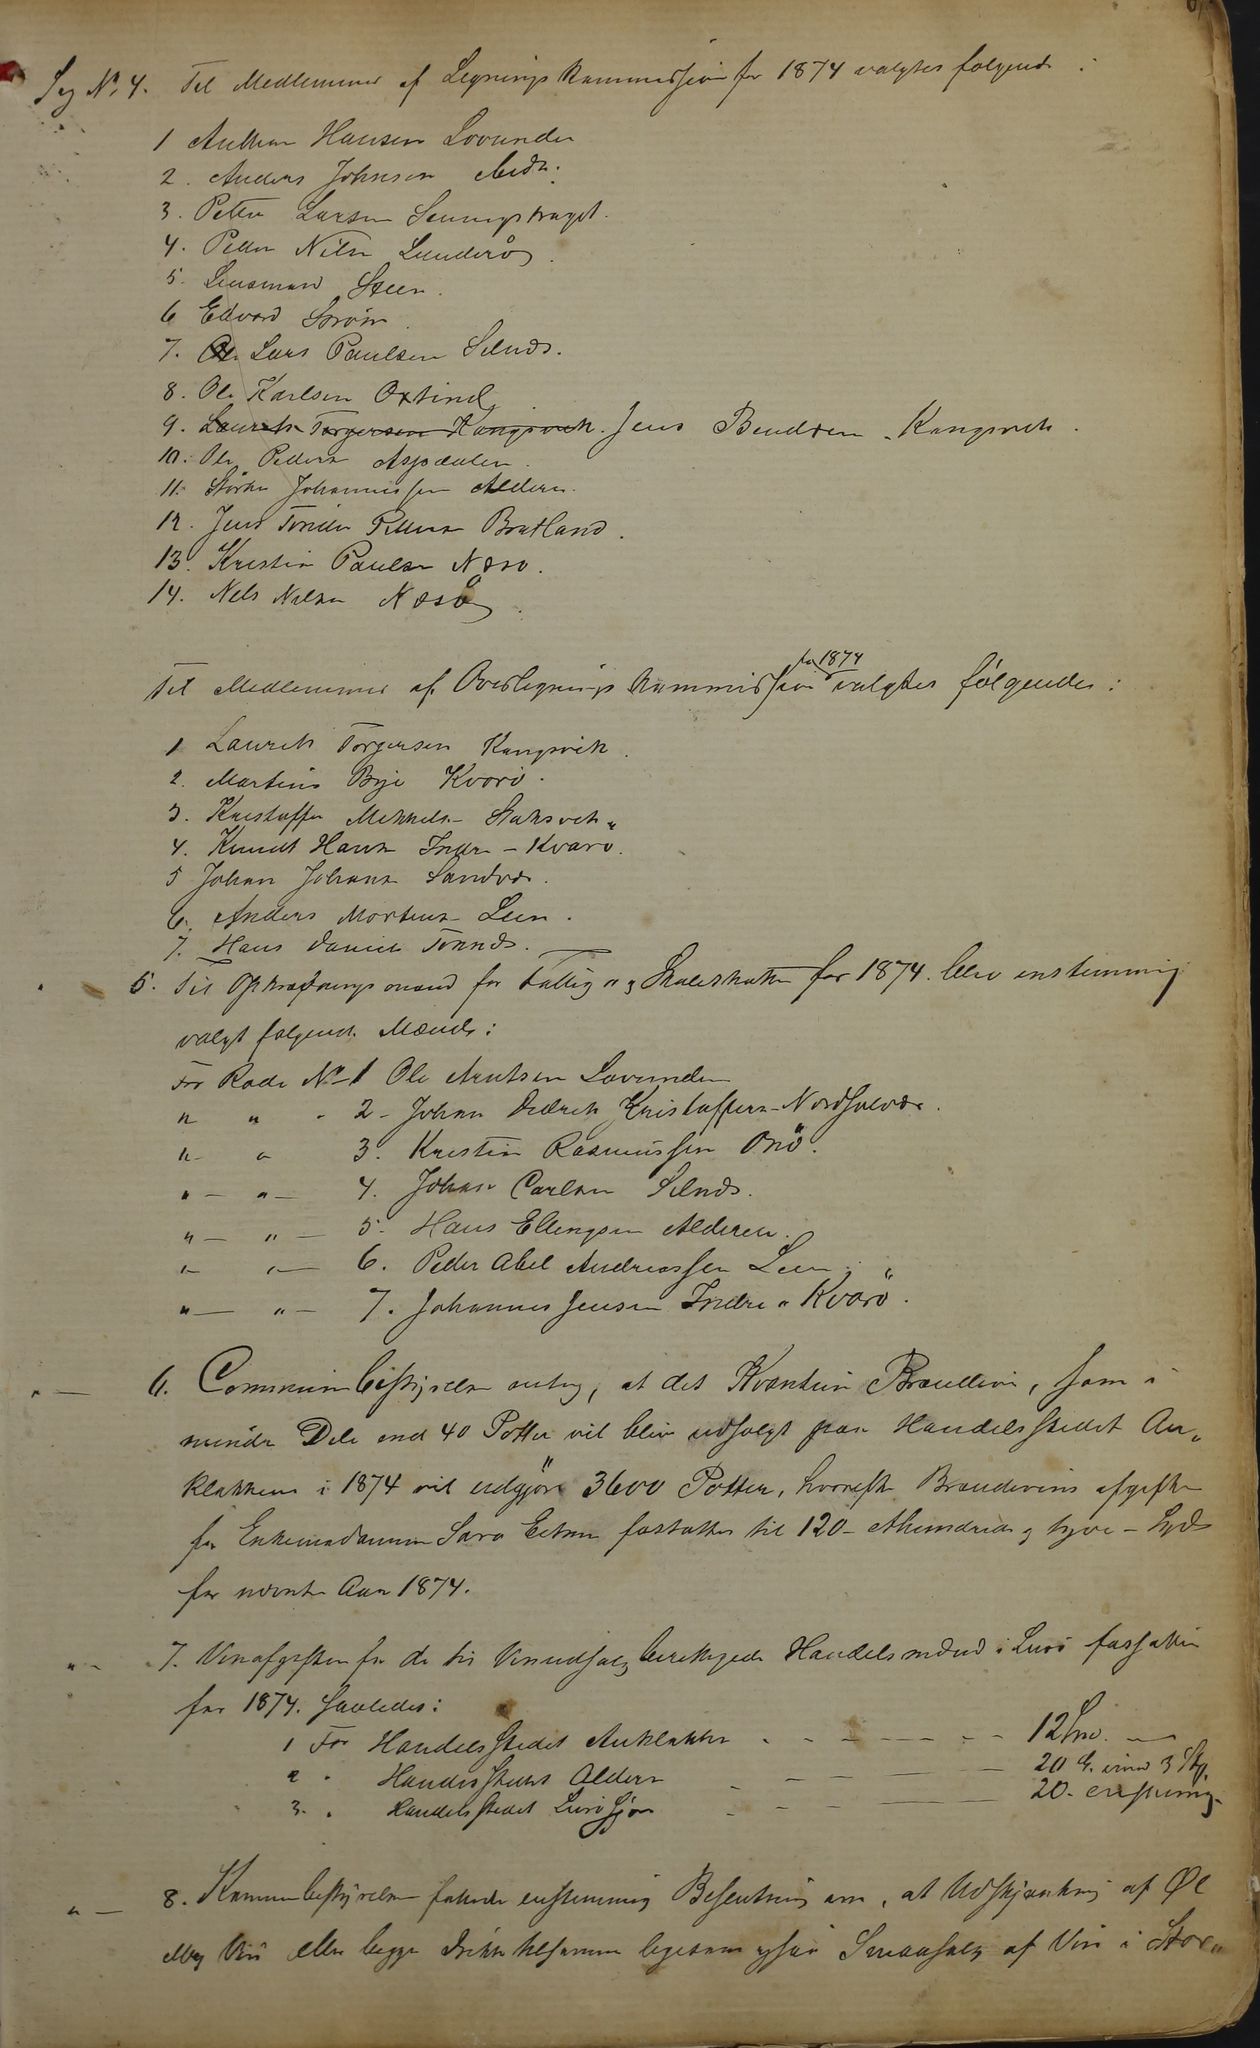 Sag No. 4. Til Medlemmer af Ligningskommissionen for 1874 valgtes følgende:
1 Anthon Hansen Lovunden
2. Anders Johnsen
3. Petter Larsen
4. Peder Nilsen Lunderø
5. Lensmand Steen.
6 Edvard Strøm.
7. Lars Paulsen Selnæs.
8. Ole Karlsen Oxtind
9. Laurits Torgersen Kangsvik. Jens Bendsen Kangsvik.
10. Ole Pedersen Aspdalen.
11. Størker Johannessen Alderen.
12. Jens Tønder Pettersen Bratland.
13. Kristen Paulsen Næsø.
14. Nels Nilsen Næsø
for 1874
Til Medlemmer af Overligningskommissionen valgtes følgende:
1 Laurits Torgersen Kangsvik.
2. Martinus Bye Kvarø.
3. Kristoffer Mikkelsen
4. Knudt Hansen Indre-Kvarø.
5 Johan Johansen Sandvær.
6. Anders Mortensen Leen.
7. Hans Daniel Tonnes.
5. Til Opkrævningsmænd for Fattig og Skoleskatten for 1874. blev enstemmig
valgt følgende Mænd:
For Rode No 1 Ole Arntsen Lovunden
" " - 2 - Johan Didrik Kristoffersen Nordsolvær.
" - " 3. Kristen Rasmussen Onø.
" - " - 4. Johan Carlsen Selnæs.
" - " - 5. Hans Ellingsen Alderen.
" " - 6. Peder Abel Andreassen Leen.
" - " - 7. Johannes Jensen Indre-Kvarø.
" - 6. Communebestyrelsen antog, at det Kvantum Brændevin, som i
mindre Dele end 40 Potter vil blive udsolgt paa Handelsstedet An-
klakken i 1874 vil udgjøre 3600 Potter, hvorefter Brændevinsafgiften
for Enkemadamme Sara fastsattes til 120 - et hundrede og tyve - Spd
for nævnte Aar 1874.
" - 7. Vinafgiften for de til Vinudsalg berettigede Handelsmænd i Lurø fastsattes
for 1874. saaledes:
1 For Handelsstedet Anklakken - - - - - 12
2 " Handelsstedet Alderen - - - 20 imod 3 St.
3. " Handelsstedet Lurø - - - 20. enstemmig
" - 8. Kommunebestyrelsen fattede enstemmig Beslutning om, at Udskjænkning af Øl
eller Vin eller begge Drikke tilsammen ligesom ogsaa Smaasalg af Vin i Stor-